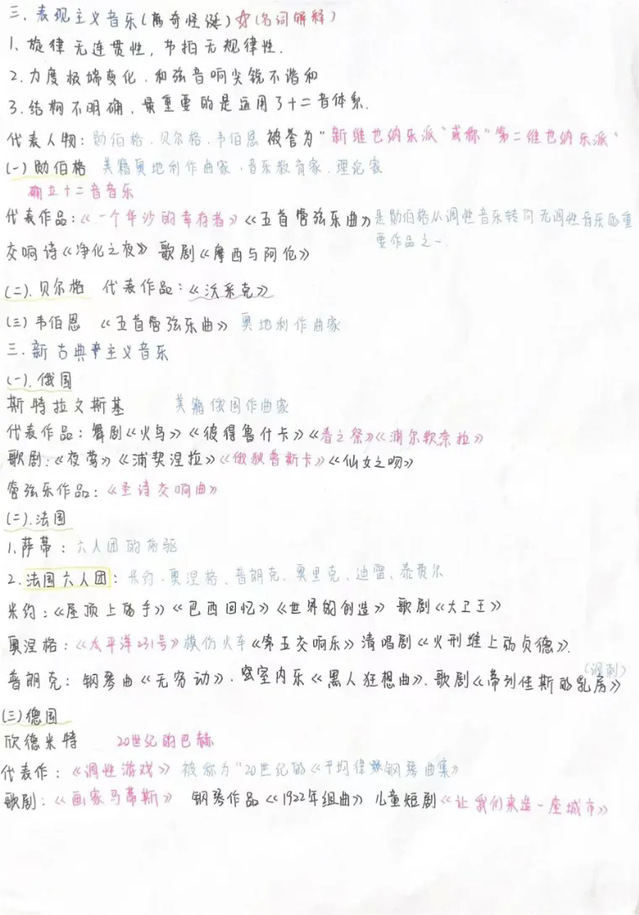 三. 表现主义音乐(离奇怪诞) ☆(名词解释)
1. 旋律无连贯性, 节拍无规律性.
2. 力度极端变化, 和弦音响尖锐不谐和
3. 结构不明确, 最重要的是运用了十二音体系.
代表人物: 勋伯格, 贝尔格, 韦伯恩 被誉为"新维也纳乐派"或称"第二维也纳乐派"
(一) 勋伯格 美籍奥地利作曲家, 音乐教育家, 理论家
确立十二音音乐
代表作品:《一个华沙的幸存者》《五首管弦乐曲》是勋伯格从调性音乐转向无调性音乐的重
要作品之一.
交响诗《净化之夜》 歌剧《摩西与阿伦》
(二). 贝尔格 代表作品:《沃采克》
(三) 韦伯恩 《五首管弦乐曲》 奥地利作曲家
三. 新古典主义音乐
(一). 俄国
斯特拉文斯基 美籍俄国作曲家
代表作品: 舞剧《火鸟》《彼得鲁什卡》《春之祭》《浦尔钦奈拉》
歌剧:《夜莺》《浦契涅拉》《俄狄普斯卡》《仙女之吻》
管弦乐作品:《圣诗交响曲》
(二). 法国
1. 萨蒂: 六人团的前驱
2. 法国六人团: 米约, 奥涅格, 普朗克, 奥里克, 迪雷, 泰费尔
米约:《屋顶上的牛》《巴西回忆》《世界的创造》 歌剧《大卫王》
奥涅格:《太平洋231号》模仿火车《第五交响乐》清唱剧《火刑堆上的贞德》.
普朗克: 钢琴曲《无穷动》. 室内乐《黑人狂想曲》. 歌剧《蒂列佳斯的乳房》(讽刺)
(三) 德国
欣德米特 20世纪的巴赫
代表作:《调性游戏》 被称为"20世纪的《平均律钢琴曲集》
歌剧:《画家马蒂斯》 钢琴作品《1922年组曲》 儿童短剧《让我们来造一座城市》